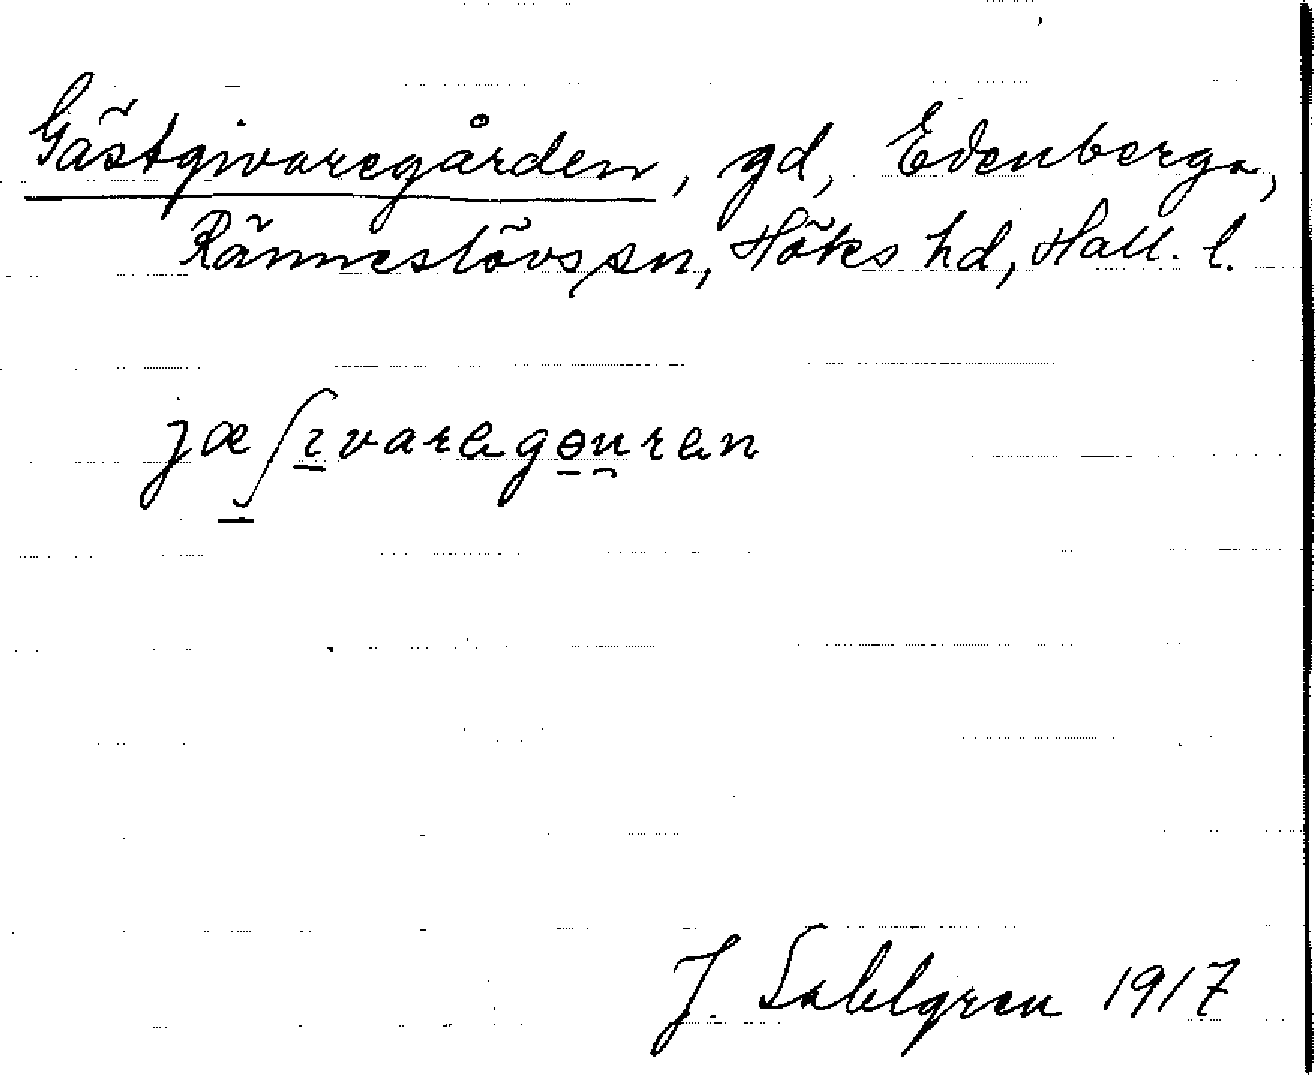 Gästgivaregården, gd, Edenberga,
Ränneslövs sn, Höks hd, Hall. l.
jæʃɪvaregɵu̯ren
J. Sahlgren 1917